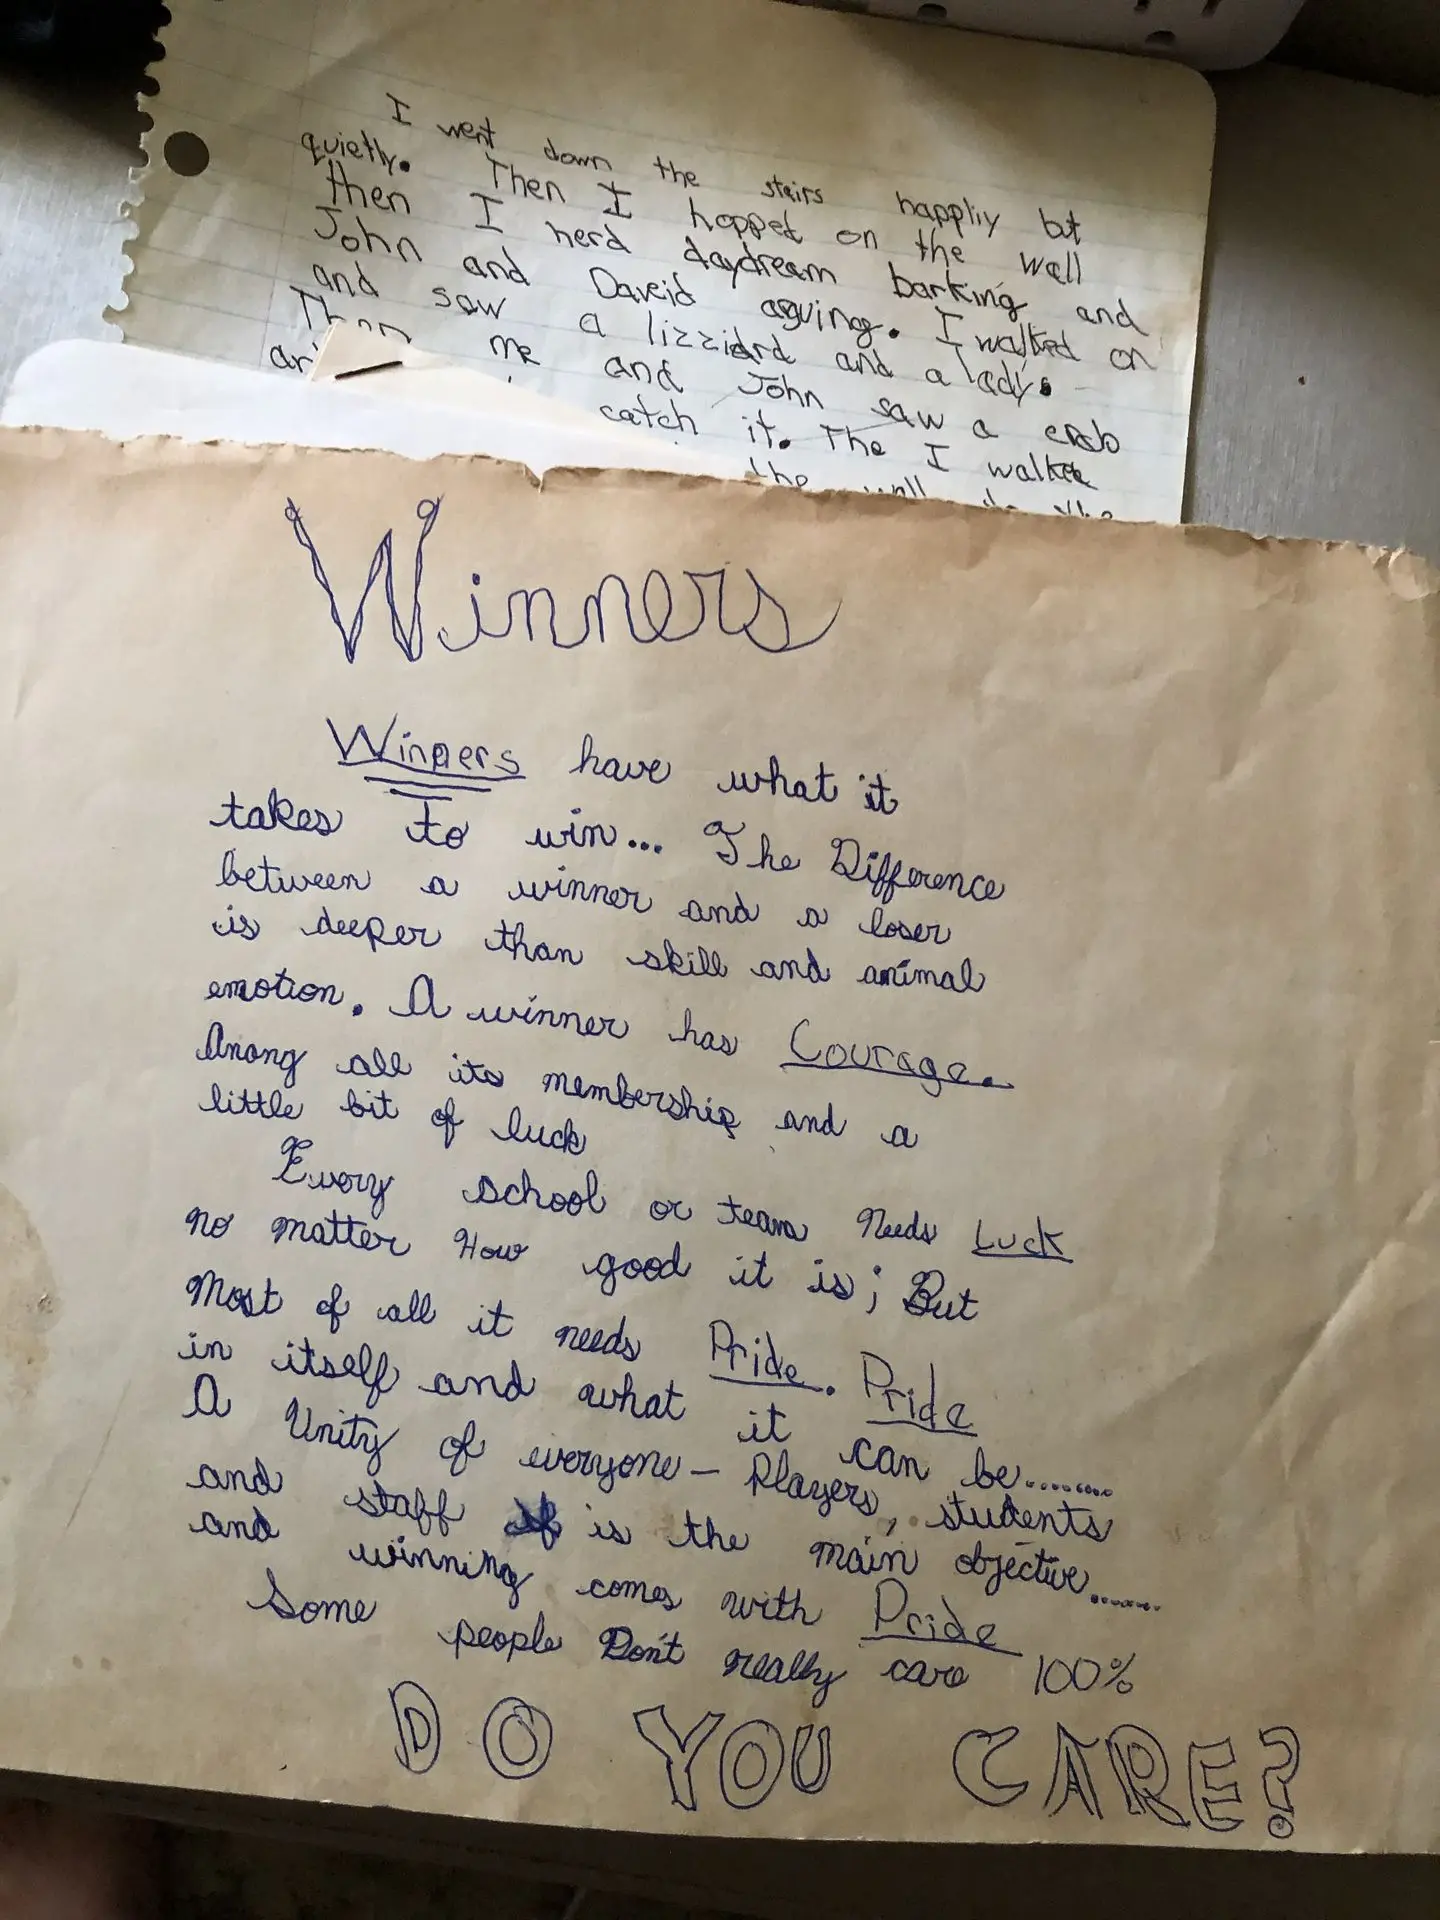 I went down the stairs happliy but
quietly. Then I hopped on the wall
then I herd daydream barking and
John and Daveid aguing. I walked on
and saw a lizziard and a lady.
Then me and John saw a crab
catch it. The I walked
the wall to the
Winners
Winners have what it
takes to win... The Difference
between a winner and a loser
is deeper than skill and animal
emotion. A winner has Courage.
Among all its membership and a
little bit of luck
Every school or team Needs Luck
no matter How good it is; But
Most of all it needs Pride. Pride
in itself and what it can be........
A Unity of everyone - Players, students
and staff is the main objective.......
and winning comes with Pride
Some people Don't really care 100%
DO YOU CARE?